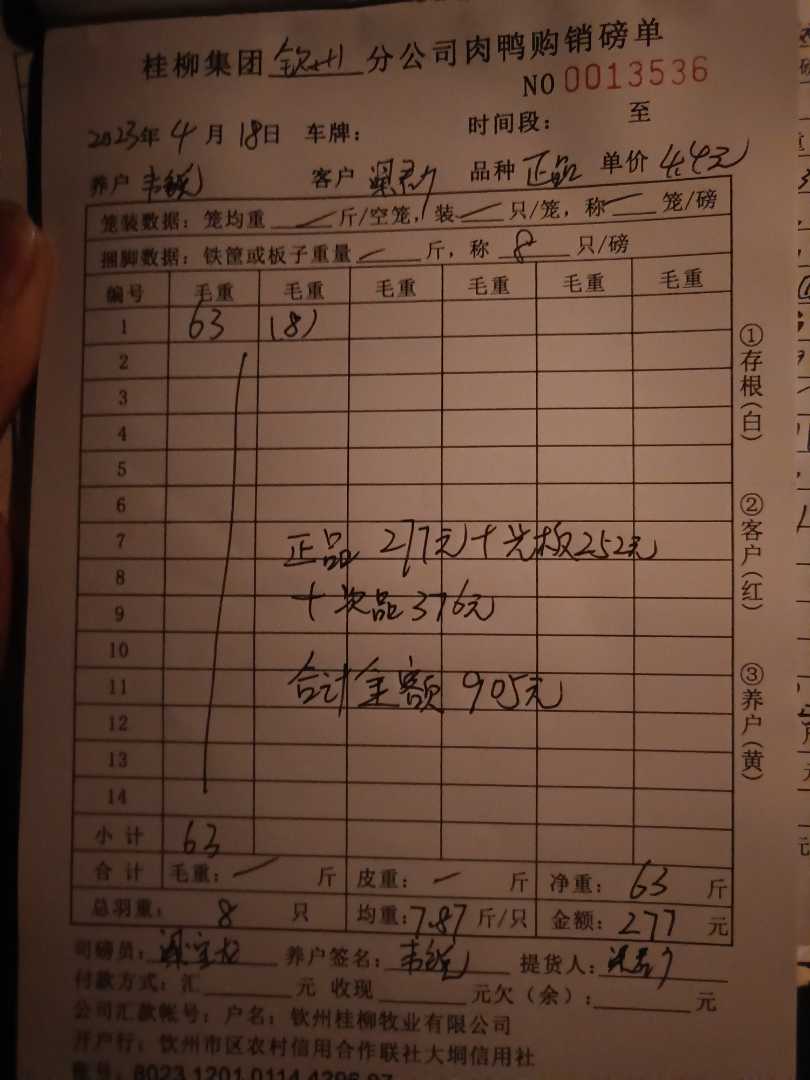 桂柳集团 钦州 分公司肉鸭购销磅单
NO 0013536
2023年 4 月 18日 车牌: 时间段: 至
养户 韦锐 客户 品种 正品 单价 4.4元
笼装数据: 笼均重 斤/空笼, 装 只/笼, 称 笼/磅
捆脚数据: 铁筐或板子重量 斤, 称 8 只/磅
编号 毛重 毛重 毛重 毛重 毛重 毛重
1 63 (8)
2
3
4
5
6
7
8
9
10
11
12
13
14
正品 277元+光板252元
+次品376元
合计金额 905元
小计 63
合计 毛重: 斤 皮重: 斤 净重: 63 斤
总羽重: 8 只 均重: 7.87 斤/只 金额: 277 元
司磅员: 养户签名: 韦锐 提货人:
付款方式: 汇 元 收现 元欠(余): 元
公司汇款帐号: 户名: 钦州桂柳牧业有限公司
开户行: 钦州市区农村信用合作联社大垌信用社
8023 1201 0114 4206 07
①存根(白)
②客户(红)
③养户(黄)